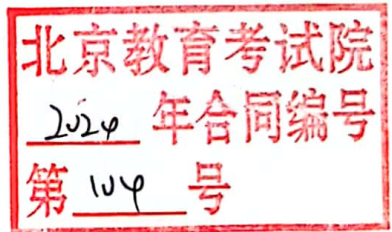 北京教育考试院
2024 年合同编号
第 104 号